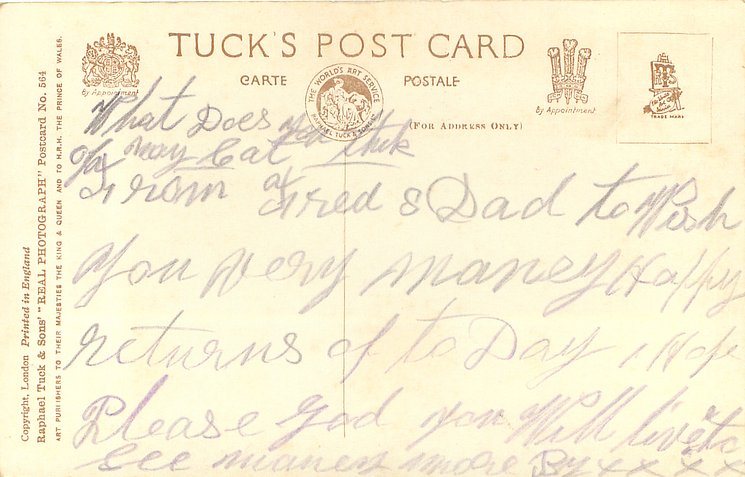 TUCK'S POST CARD
CARTE POSTALE
By Appointment
THE WORLD'S ART SERVICE
RAPHAEL TUCK & SONS LTD
By Appointment
TRADE MARK
(FOR ADDRESS ONLY)
What Does you
of my Cat
From Fred & Dad to Wish
you very maney Happy
returns of to Day i Hope
Please God you Will live to
see maney more By x x x x
Copyright, London Printed in England
Raphael Tuck & Sons' "REAL PHOTOGRAPH" Postcard No. 564
ART PUBLISHERS TO THEIR MAJESTIES THE KING & QUEEN AND TO H.R.H. THE PRINCE OF WALES.